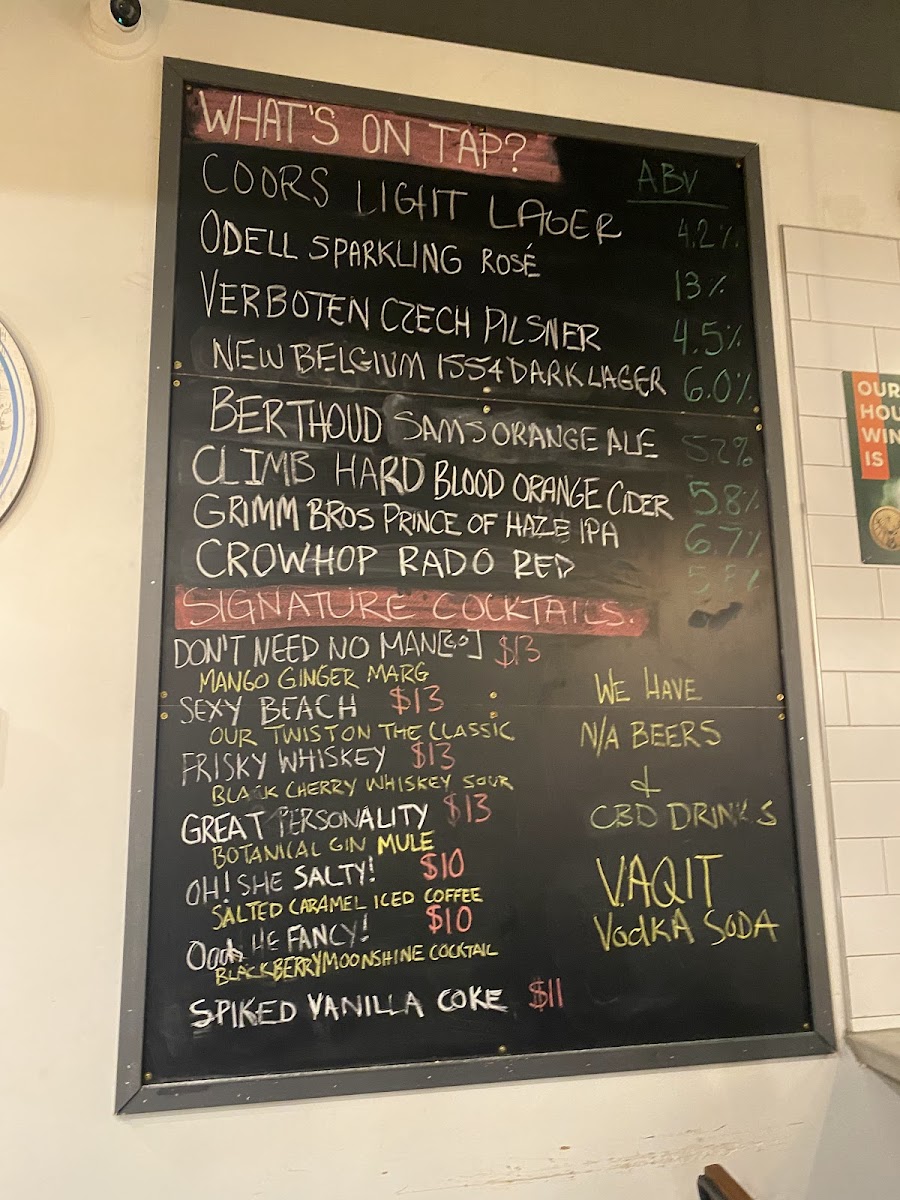 WHAT'S ON TAP?
ABV
COORS LIGHT LAGER 4.2%
ODELL SPARKLING ROSÉ 13%
VERBOTEN CZECH PILSNER 4.5%
NEW BELGIUM 1554 DARK LAGER 6.0%
BERTHOUD SAMS ORANGE ALE 52%
CLIMB HARD BLOOD ORANGE CIDER 5.8%
GRIMM BROS PRINCE OF HAZE IPA 6.7%
CROWHOP RADO RED
SIGNATURE COCKTAILS.
DON'T NEED NO MAN[GO] $13
MANGO GINGER MARG
SEXY BEACH $13
OUR TWIST ON THE CLASSIC
FRISKY WHISKEY $13
BLACK CHERRY WHISKEY SOUR
GREAT PERSONALITY $13
BOTANICAL GIN MULE
OH! SHE SALTY! $10
SALTED CARAMEL ICED COFFEE
Oooh HE FANCY! $10
BLACKBERRY MOONSHINE COCKTAIL
SPIKED VANILLA COKE $11
WE HAVE
N/A BEERS
&
CBD DRINKS
VAQIT
VodKA SODA
OUR
HOU
WIN
IS